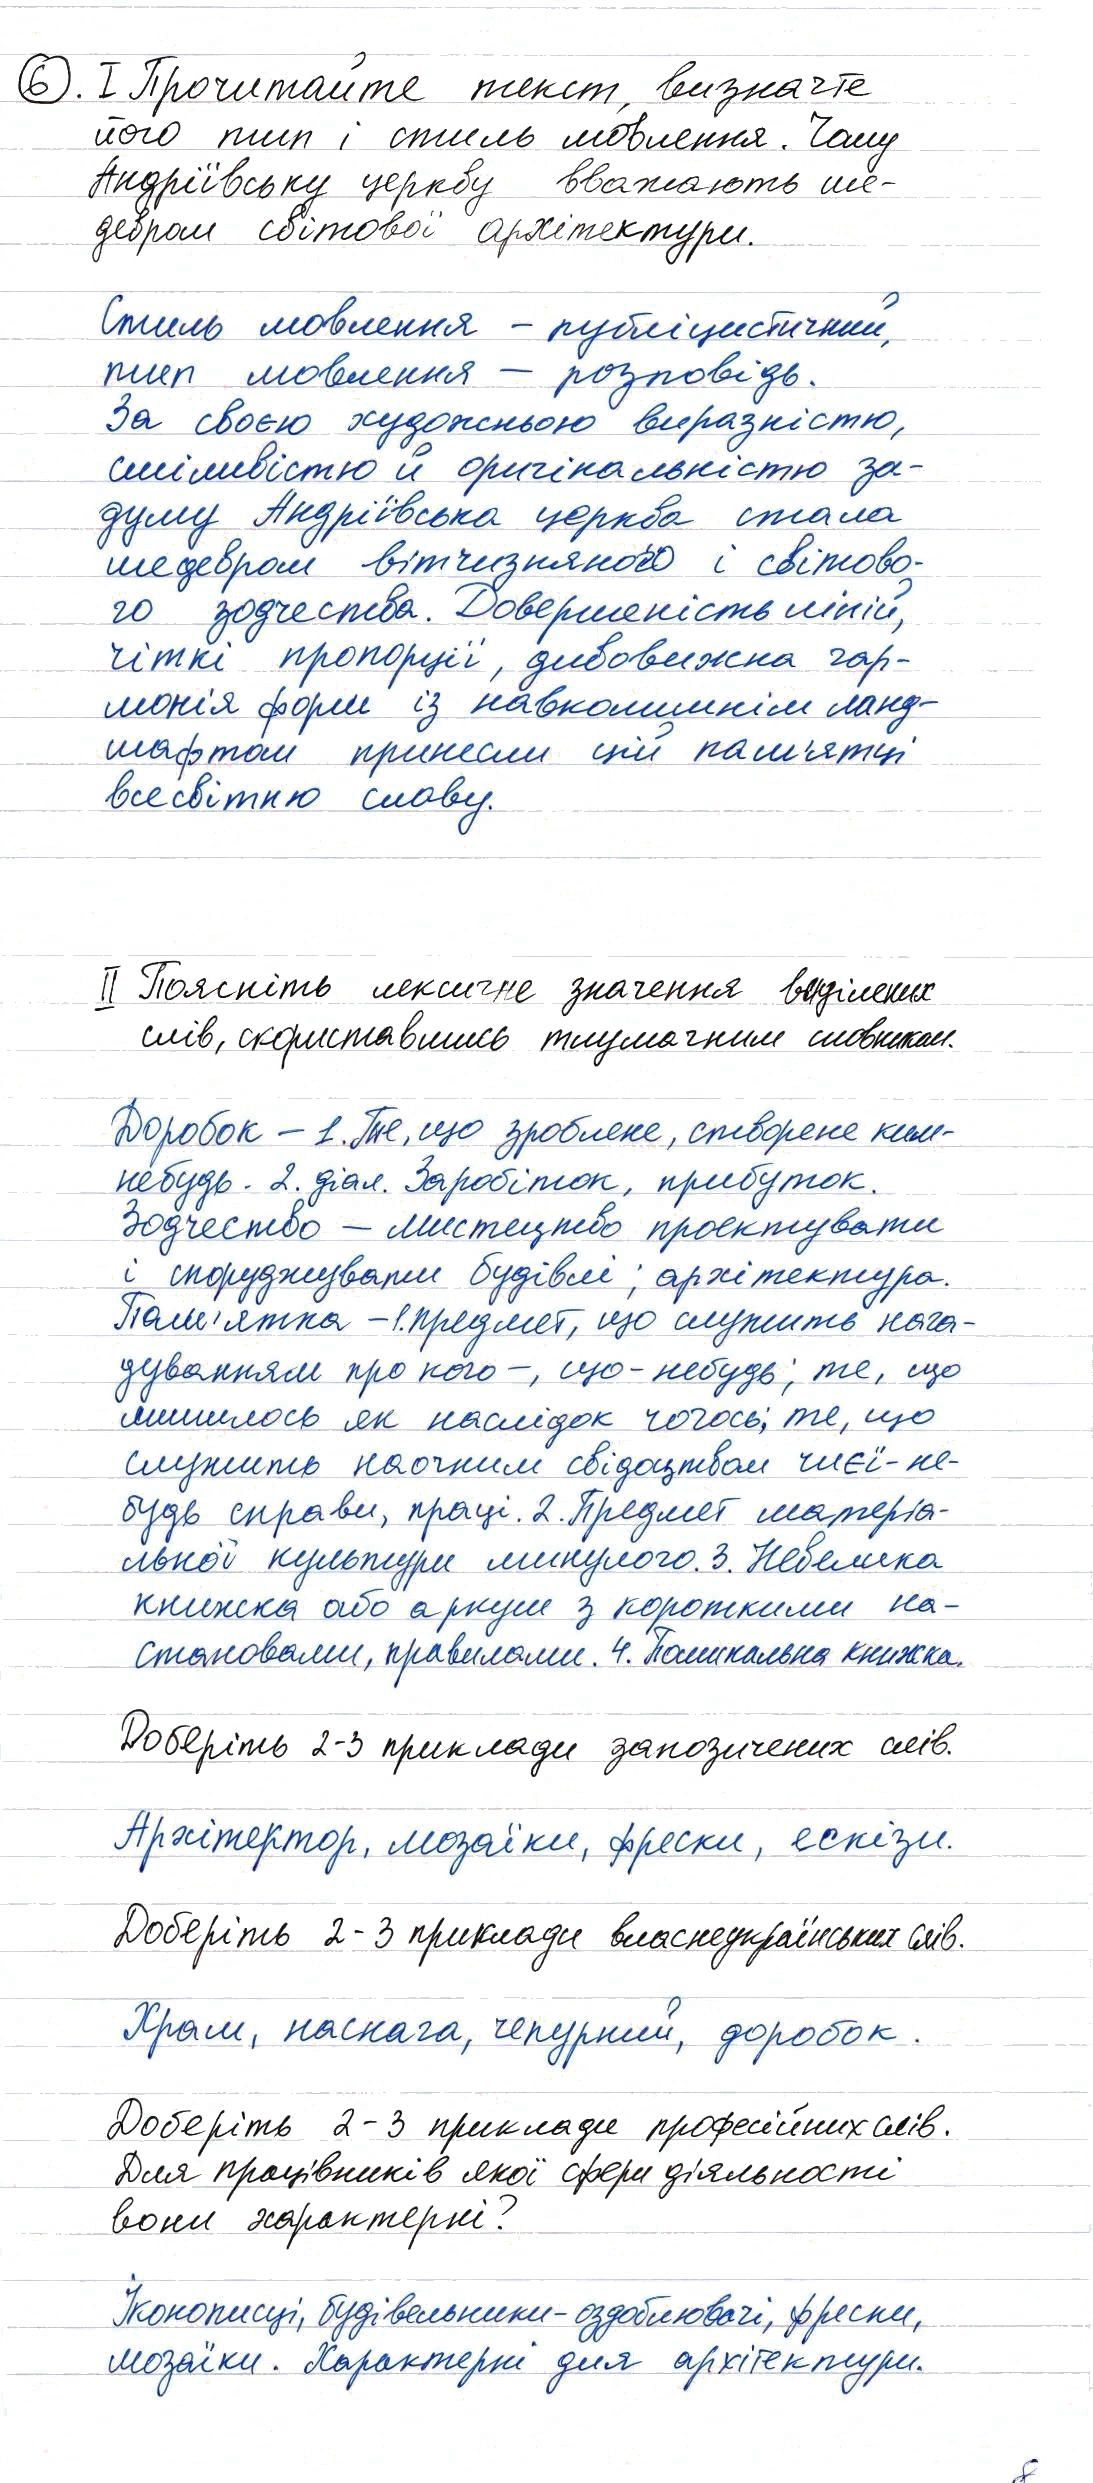 6. I Прочитайте текст, визначте
його тип і стиль мовлення. Чому
Андріївську церкву вважають ше-
девром світової архітектури.
Стиль мовлення – публіцистичний,
тип мовлення – розповідь.
За своєю художньою виразністю,
сміливістю й оригінальністю за-
думу Андріївська церква стала
шедевром вітчизняного і світово-
го зодчества. Довершеність ліній,
чіткі пропорції, дивовижна гар-
монія форм із навколишнім ланд-
шафтом принесли цій пам'ятці
всесвітню славу.
II Поясніть лексичне значення виділених
слів, скориставшись тлумачним словником.
Доробок – 1. Те, що зроблене, створене ким-
небудь. 2. діал. Заробіток, прибуток.
Зодчество – мистецтво проєктувати
і споруджувати будівлі; архітектура.
Пам'ятка – 1. предмет, що служить нага-
дуванням про кого-, що-небудь; те, що
лишилось як наслідок чогось; те, що
служить наочним свідацтвом чиєї-не-
будь справи, праці. 2. Предмет матеріа-
льної культури минулого. 3. Невелика
книжка або аркуш з короткими на-
становами, правилами. 4. Поминальна книжка.
Доберіть 2-3 приклади запозичених слів.
Архітектор, мозаїки, фрески, ескізи.
Доберіть 2-3 приклади власнеукраїнських слів.
Храм, наснага, чепурний, доробок.
Доберіть 2-3 приклади професійних слів.
Для працівників якої сфери діяльності
вони характерні?
Іконописці, будівельники-оздоблювачі, фрески,
мозаїки. Характерні для архітектури.
8